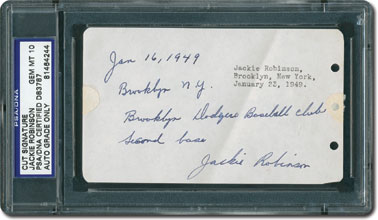 PSA/DNA
CUT SIGNATURE
JACKIE ROBINSON
GEM MT 10
PSA/DNA CERTIFIED 083767
81464244
AUTO GRADE ONLY
Jan 16, 1949
Brooklyn N.Y.
Brooklyn Dodgers Baseball club
second base
Jackie Robinson
Jackie Robinson,
Brooklyn, New York,
January 22, 1949.